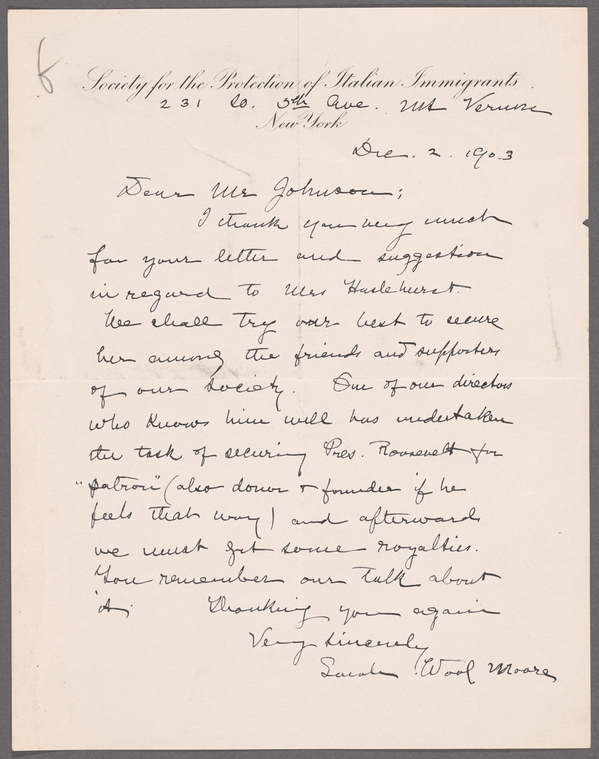 Society for the Protection of Italian Immigrants
231 So. 5th Ave. Mt Vernon
New York
Dec. 2. 1903
Dear Mr Johnson;
I thank you very much
for your letter and suggestion
in regard to Mrs Haslehurst.
We shall try our best to secure
her among the friends and supporters
of our Society. One of our directors
who knows him well has undertaken
the task of securing Pres. Roosevelt for
"patron" (also donor & founder if he
feels that way) and afterwards
we must get some royalties.
You remember our talk about
it; Thanking you again
Very sincerely
Sarah Wool Moore